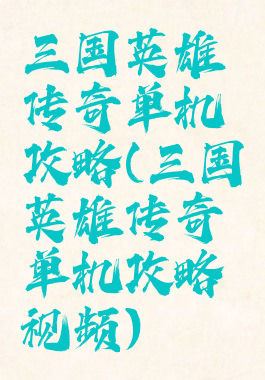 三国英雄
传奇单机
攻略(三国
英雄传奇
单机攻略
视频)